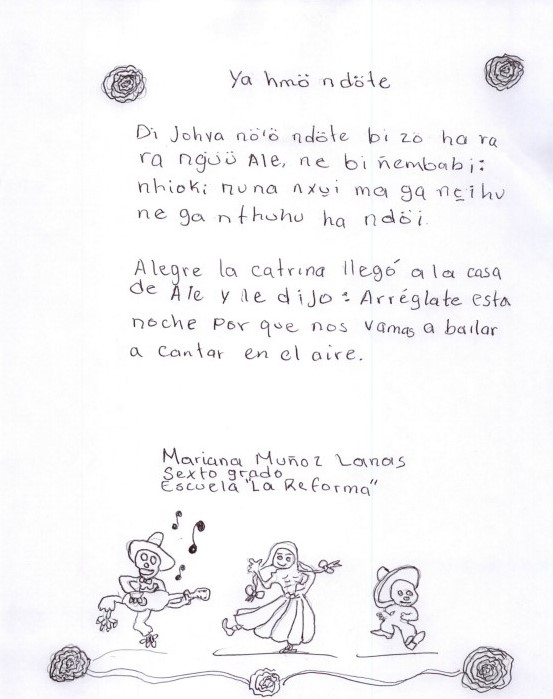 Ya hmö ndöte
Di Johya nö'ö ndöte bi zö ha ra
ra ngüü Ale, ne bi ñembabi:
nhioki nuna nxu̱i ma ga ne̱ihu
ne ga nthuhu ha ndöi.
Alegre la catrina llegó a la casa
de Ale y le dijo: Arréglate esta
noche por que nos vamos a bailar
a cantar en el aire.
Mariana Muñoz Lanas
Sexto grado
Escuela "La Reforma"